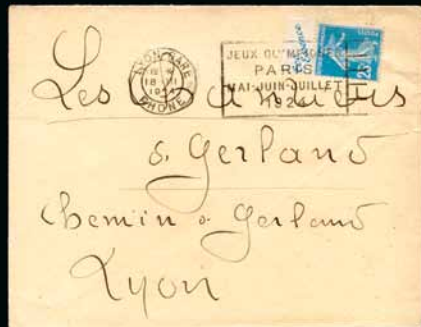 LYON GARE
18 VI
RHONE
JEUX OLYMPIQUES
PARIS
MAI-JUIN-JUILLET
1924
25
Les
de Gerland
Chemin de Gerland
Lyon